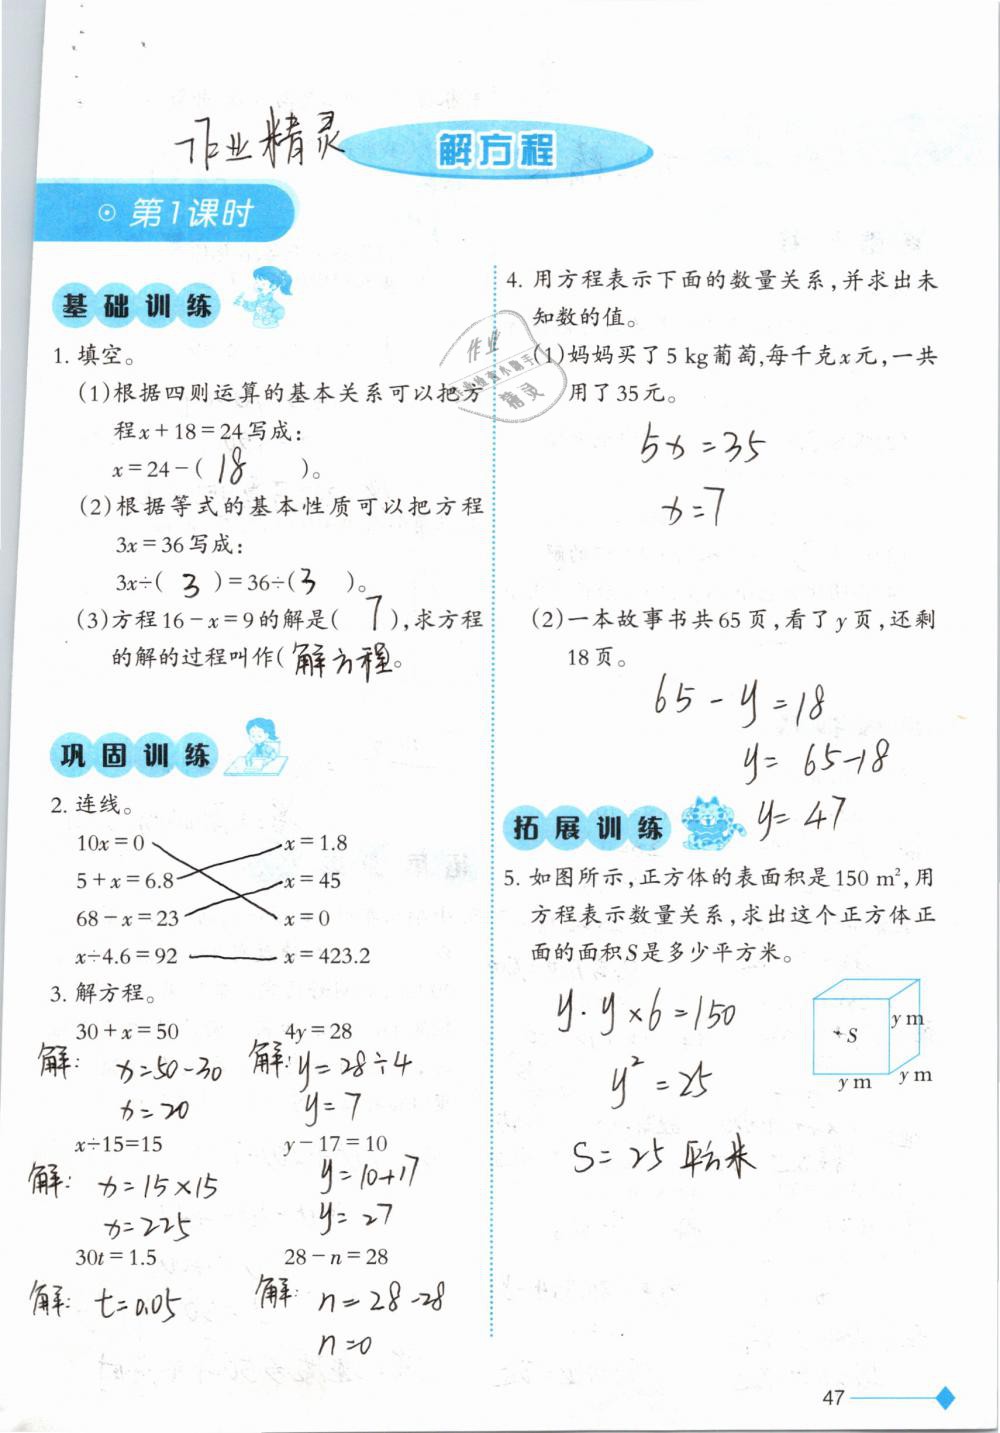 作业精灵
解方程
第1课时
基础训练
1. 填空。
(1)根据四则运算的基本关系可以把方
程x+18=24写成:
x=24-( 18 )。
(2)根据等式的基本性质可以把方程
3x=36写成:
3x÷( 3 )=36÷( 3 )。
(3)方程16-x=9的解是( 7 ),求方程
的解的过程叫作( 解方程。
巩固训练
2. 连线。
10x=0 x=1.8
5+x=6.8 x=45
68-x=23 x=0
x÷4.6=92 x=423.2
3. 解方程。
30+x=50 4y=28
解: x=50-30 解: y=28÷4
x=20 y=7
x÷15=15 y-17=10
解: x=15×15 y=10+17
x=225 y=27
30t=1.5 28-n=28
解: t=0.05 解: n=28-28
n=0
4. 用方程表示下面的数量关系,并求出未
知数的值。
(1)妈妈买了5 kg葡萄,每千克x元,一共
用了35元。
作业
精灵
5x=35
x=7
(2)一本故事书共65页,看了y页,还剩
18页。
65-y=18
y=65-18
y=47
拓展训练
5. 如图所示,正方体的表面积是150 m²,用
方程表示数量关系,求出这个正方体正
面的面积S是多少平方米。
y·y×6=150
y²=25
S=25平方米
S
y m
y m
y m
47